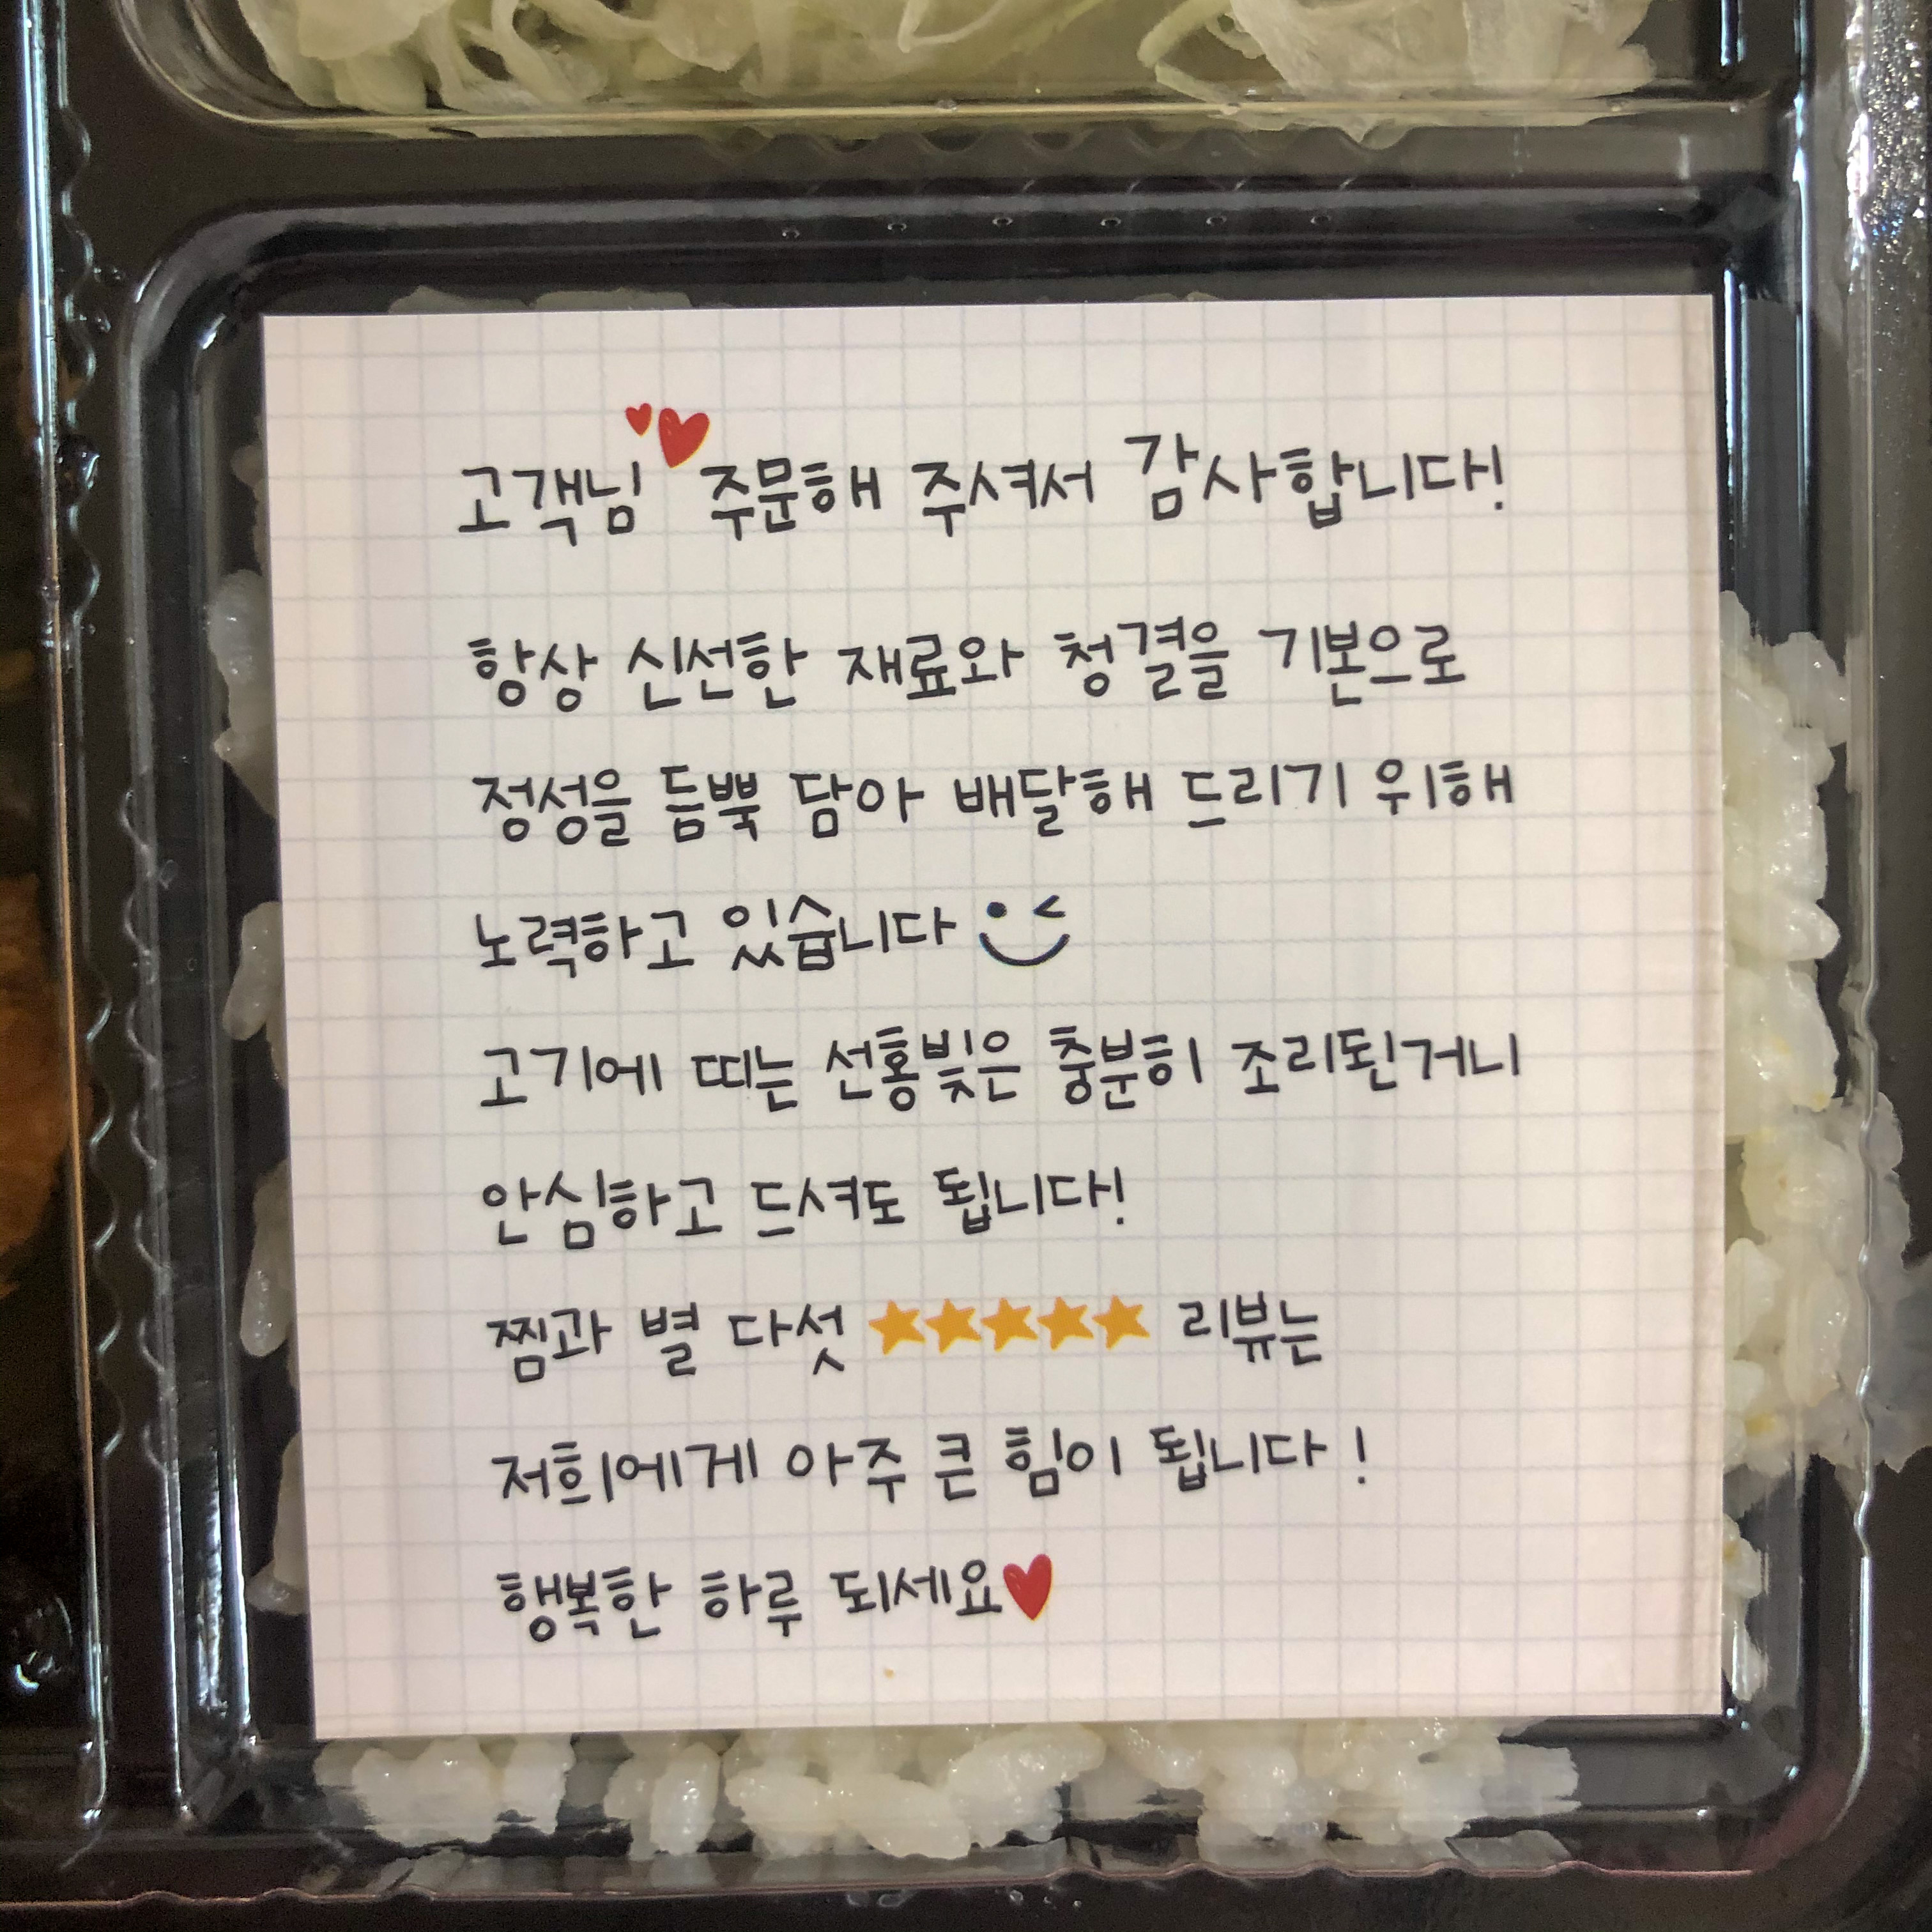 고객님 주문해 주셔서 감사합니다!
항상 신선한 재료와 청결을 기본으로
정성을 듬뿍 담아 배달해 드리기 위해
노력하고 있습니다
고기에 띠는 선홍빛은 충분히 조리된거니
안심하고 드셔도 됩니다!
찜과 별 다섯 ★★★★★ 리뷰는
저희에게 아주 큰 힘이 됩니다!
행복한 하루 되세요♥